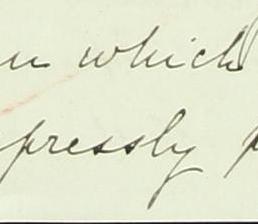 which
pressly